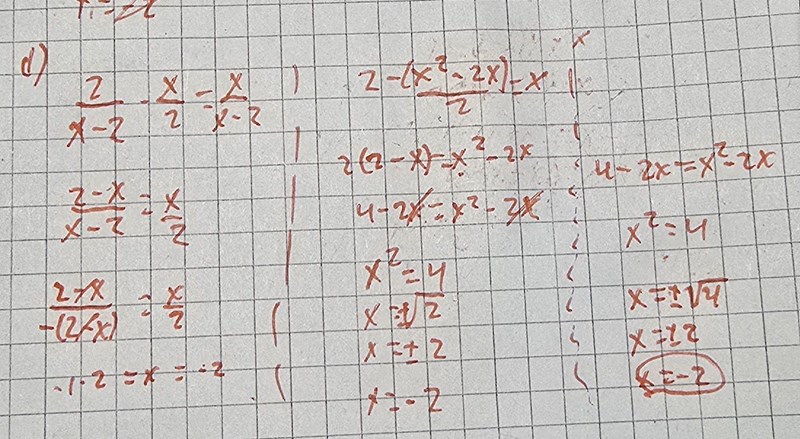 d)
2/(x-2) - x/2 = x/(x-2)
(2-x)/(x-2) = x/2
(2-x)/(-(2-x)) = x/2
-1·2 = x = -2
2 - (x² - 2x)/2 = x
2(2-x) = x² - 2x
4 - 2x = x² - 2x
x² = 4
x = ±√2
x = ± 2
x = -2
4 - 2x = x² - 2x
x² = 4
x = ±√4
x = ±2
x = -2